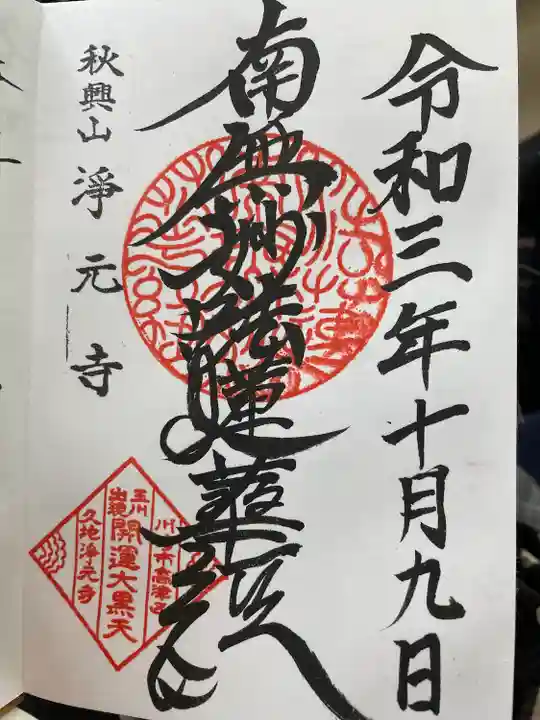 令和三年十月九日
南無妙法蓮華経
秋興山 淨元寺
川
市高津区
玉川
出現
開運大黒天
久地淨元寺